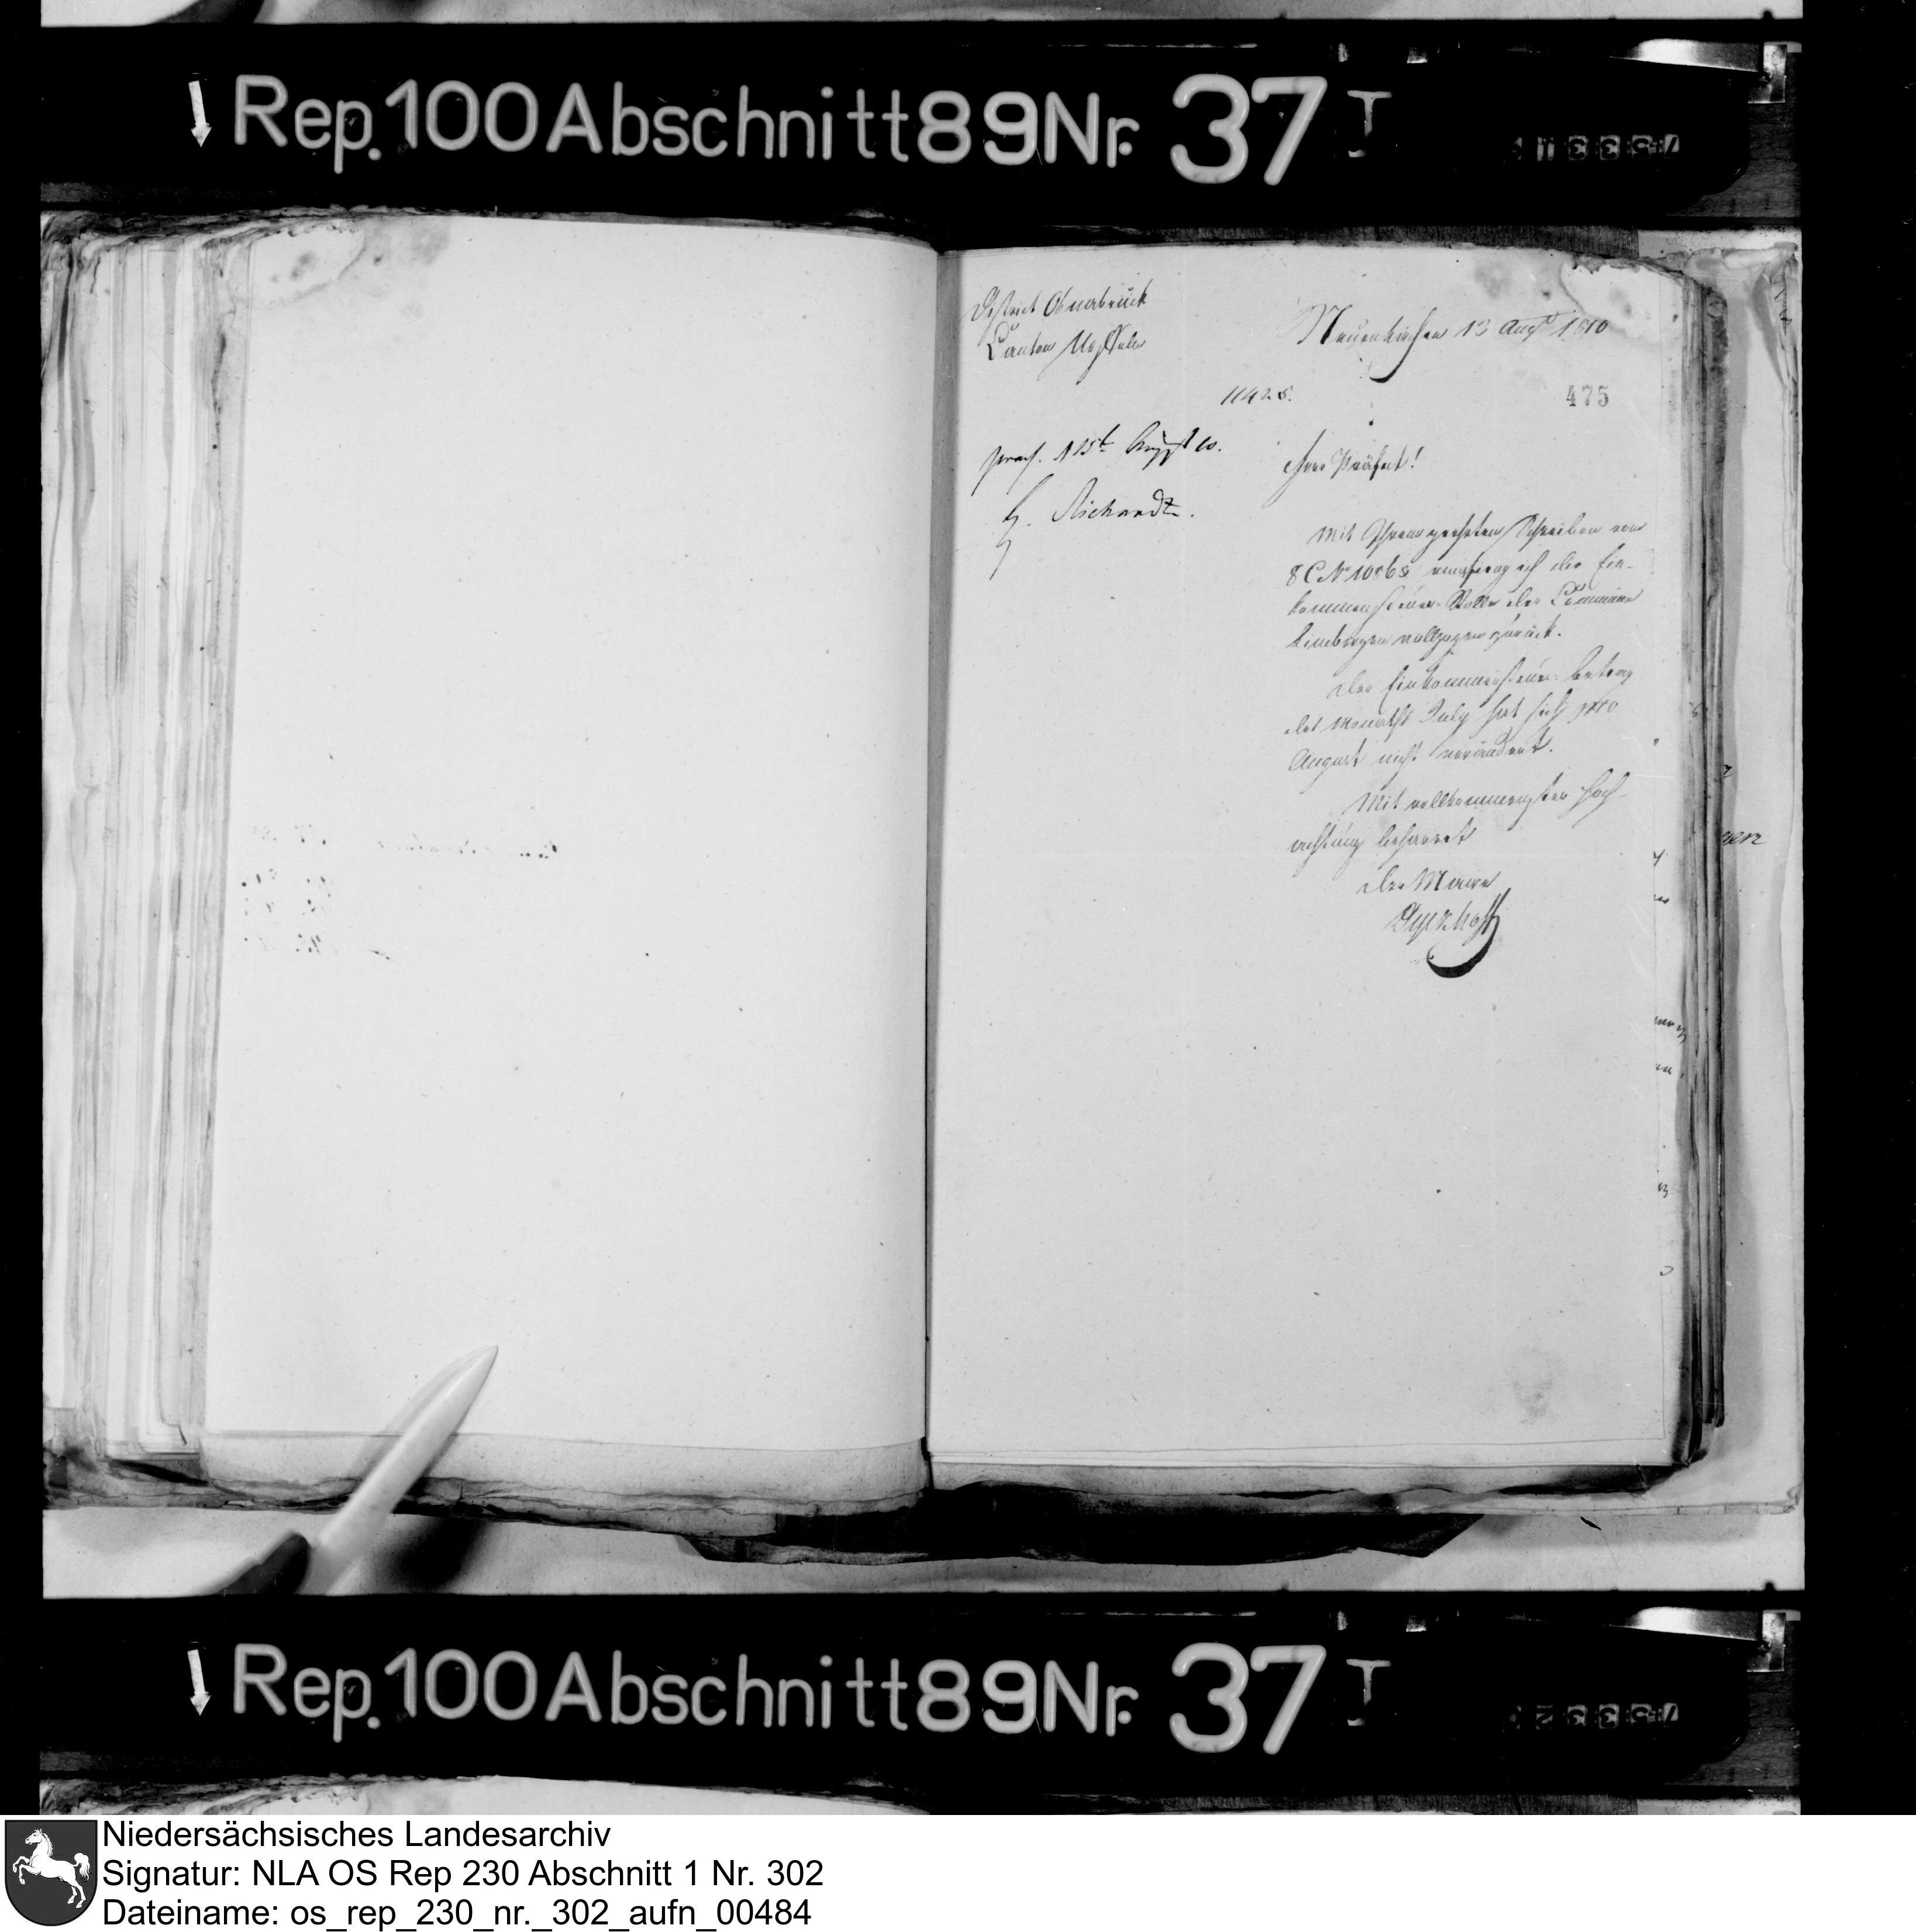 Rep. 100 Abschnitt 89 Nr. 37 I
District Osnabrück
Canton Ueffeln
Neuenkirchen 13 Augst 1810
11425.
475
praes. d 15t August 10.
Richardt.
Herr Präfect!
Mit Ihrem geehrten Schreiben vom
8 C No 10865 empfieng ich die Ein-
kommensteuer-Rolle der Commüne
Limbergen vollzogen zurück.
Der Einkommensteuer-Betrag
des Monaths July hat sich pro
August nicht verändert.
Mit vollkommenster Hoch-
achtung beharret
Der Maire
Rep. 100 Abschnitt 89 Nr. 37 I
Niedersächsisches Landesarchiv
Signatur: NLA OS Rep 230 Abschnitt 1 Nr. 302
Dateiname: os_rep_230_nr._302_aufn_00484